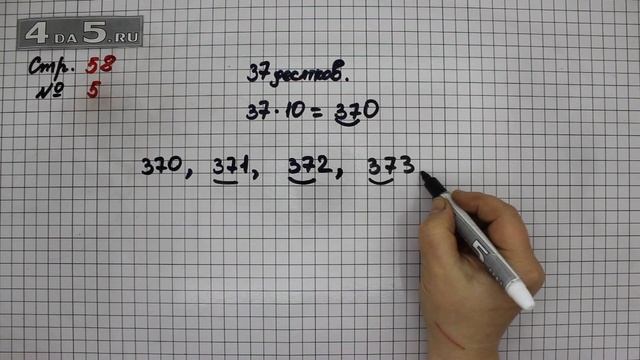 4 DA 5.RU
Стр. 58
№ 5
37 десятков.
37 · 10 = 370
370, 371, 372, 373